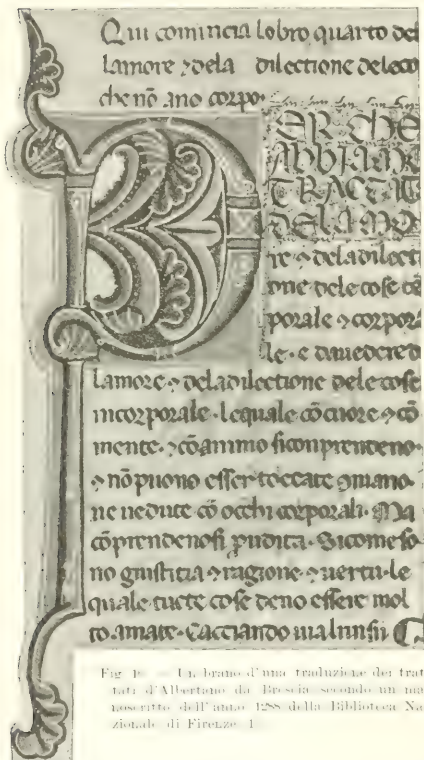 Qui comincia lobro quarto del
lamore ⁊ dela dilectione deleco
che nō ano corpo·
PER CHE
ABBIAMO
TRACTAT
DELAMO
re ⁊ dela dilecti
one dele cose cō
porale ⁊ corpora
le· e da uedere d
lamore ⁊ dela dilectione dele cose
incorporale· lequale cō cuore ⁊ cō
mente· ⁊ cō animo si conprendeno·
⁊ nō puono esser toccate 9 mano·
ne uedute cō occhi corporali· Ma
cōprendenosi p udita· Si come so
no giustitia ⁊ ragione ⁊ uertu· le
quale tucte cose deno essere mol
to amate· Cacciando uia
Fig. — Un brano d'una traduzione dei trat-
tati d'Albertano da Brescia secondo un ma-
noscritto dell'anno 1288 della Biblioteca Na-
zionale di Firenze